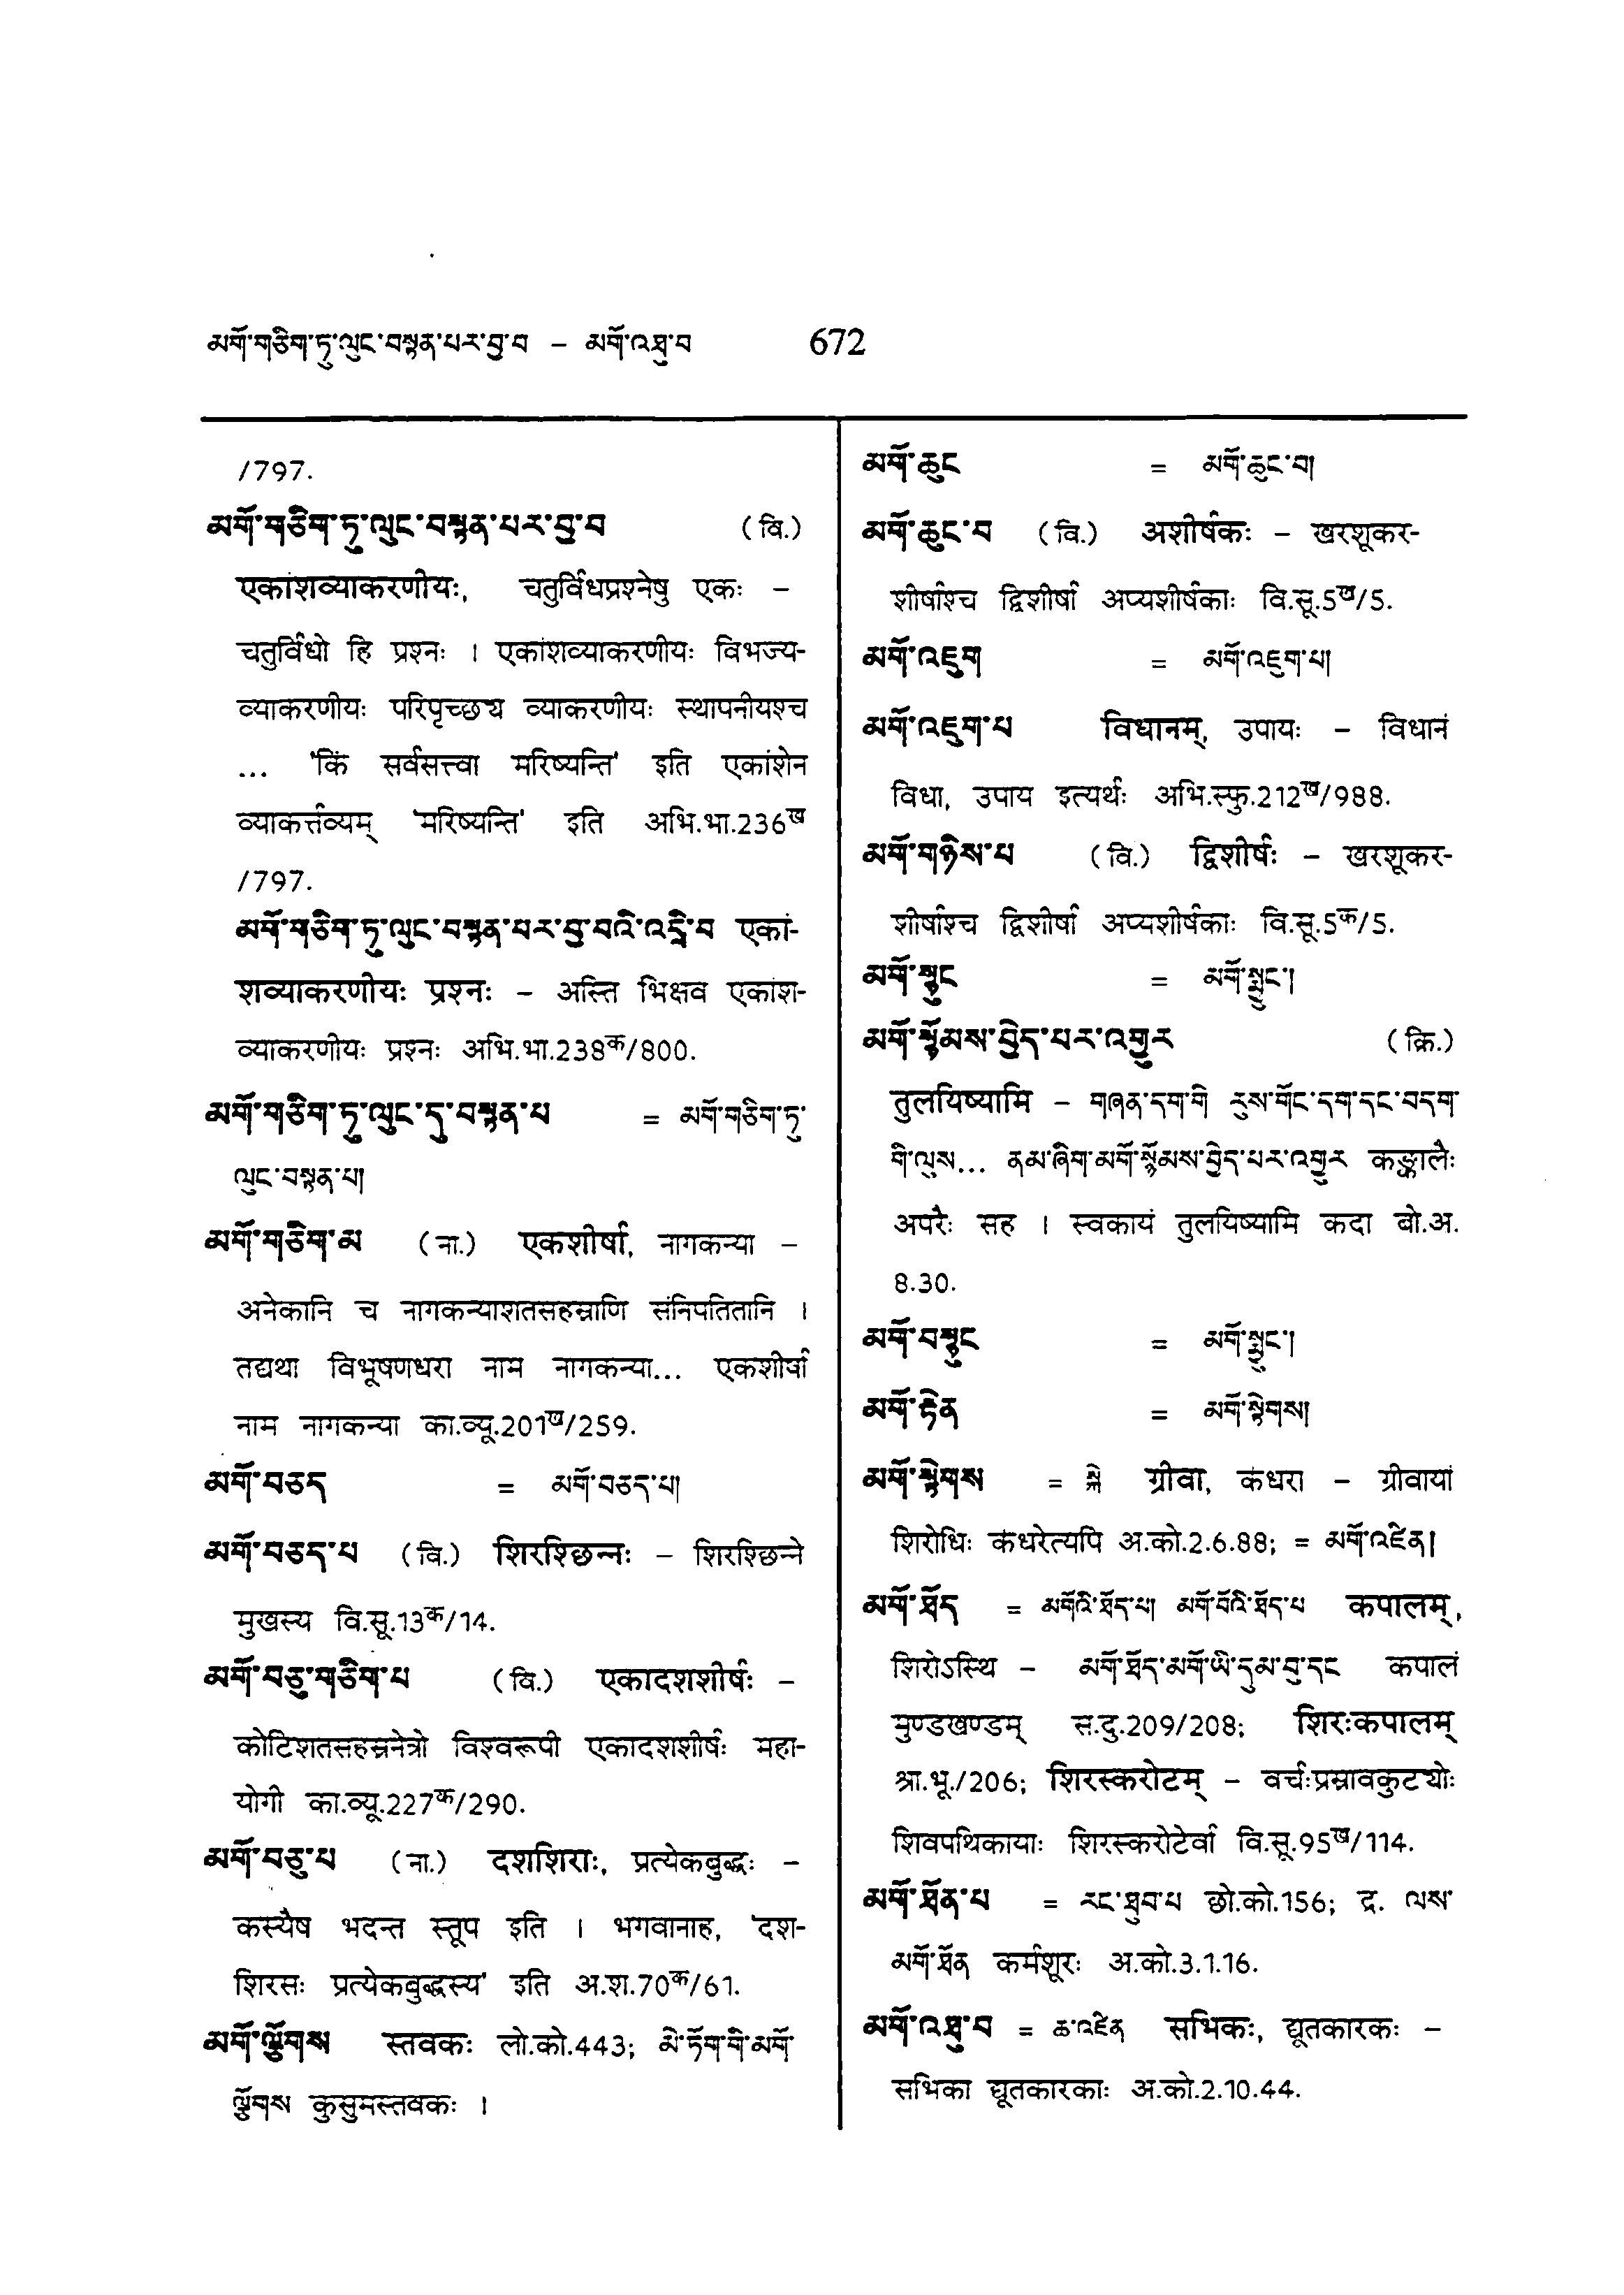 མགོ་གཅིག་ཏུ་ལུང་བསྟན་པར་བྱ་བ – མགོ་འཐུ་བ 672
/797.
མགོ་གཅིག་ཏུ་ལུང་བསྟན་པར་བྱ་བ (वि.)
एकांशव्याकरणीयः, चतुर्विधप्रश्नेषु एकः –
चतुर्विधो हि प्रश्नः । एकांशव्याकरणीयः विभज्य-
व्याकरणीयः परिपृच्छ्य व्याकरणीयः स्थापनीयश्च
... 'किं सर्वसत्त्वा मरिष्यन्ति' इति एकांशेन
व्याकर्त्तव्यम् 'मरिष्यन्ति' इति अभि.भा.236ख
/797.
མགོ་གཅིག་ཏུ་ལུང་བསྟན་པར་བྱ་བའི་འདྲི་བ एकां-
शव्याकरणीयः प्रश्नः – अस्ति भिक्षव एकांश-
व्याकरणीयः प्रश्नः अभि.भा.238क/800.
མགོ་གཅིག་ཏུ་ལུང་དུ་བསྟན་པ = མགོ་གཅིག་ཏུ་
ལུང་བསྟན་པ།
མགོ་གཅིག་མ (ना.) एकशीर्षा, नागकन्या –
अनेकानि च नागकन्याशतसहस्राणि संनिपतितानि ।
तद्यथा विभूषणधरा नाम नागकन्या... एकशीर्षा
नाम नागकन्या का.व्यू.201ख/259.
མགོ་བཅད = མགོ་བཅད་པ།
མགོ་བཅད་པ (वि.) शिरश्छिन्नः – शिरश्छिन्ने
मुखस्य वि.सू.13क/14.
མགོ་བཅུ་གཅིག་པ (वि.) एकादशशीर्षः –
कोटिशतसहस्रनेत्रो विश्वरूपी एकादशशीर्षः महा-
योगी का.व्यू.227क/290.
མགོ་བཅུ་པ (ना.) दशशिराः, प्रत्येकबुद्धः –
कस्यैष भदन्त स्तूप इति । भगवानाह, 'दश-
शिरसः प्रत्येकबुद्धस्य' इति अ.श.70क/61.
མགོ་ལྕོགས स्तवकः लो.को.443; མེ་ཏོག་གི་མགོ་
ལྕོགས कुसुमस्तवकः ।
མགོ་ཆུང = མགོ་ཆུང་བ།
མགོ་ཆུང་བ (वि.) अशीर्षकः – खरशूकर-
शीर्षाश्च द्विशीर्षा अप्यशीर्षकाः वि.सू.5ख/5.
མགོ་འཇུག = མགོ་འཇུག་པ།
མགོ་འཇུག་པ विधानम्, उपायः – विधानं
विधा, उपाय इत्यर्थः अभि.स्फु.212ख/988.
མགོ་གཉིས་པ (वि.) द्विशीर्षः – खरशूकर-
शीर्षाश्च द्विशीर्षा अप्यशीर्षकाः वि.सू.5क/5.
མགོ་སྙུང = མགོ་སྨྱུང་།
མགོ་སྙོམས་བྱེད་པར་འགྱུར (क्रि.)
तुलयिष्यामि – གཞན་དག་གི རུས་གོང་དག་དང་བདག་
གི་ལུས... ནམ་ཞིག་མགོ་སྙོམས་བྱེད་པར་འགྱུར कङ्कालैः
अपरैः सह । स्वकायं तुलयिष्यामि कदा बो.अ.
8.30.
མགོ་བསྙུང = མགོ་སྨྱུང་།
མགོ་རྟེན = མགོ་སྟེགས།
མགོ་སྟེགས = སྐེ ग्रीवा, कंधरा – ग्रीवायां
शिरोधिः कंधरेत्यपि अ.को.2.6.88; = མགོ་འཛིན།
མགོ་ཐོད = མགོའི་ཐོད་པ། མགོ་བོའི་ཐོད་པ कपालम्,
शिरोऽस्थि – མགོ་ཐོད་མགོ་ཡི་དུམ་བུ་དང कपालं
मुण्डखण्डम् स.दु.209/208; शिरःकपालम्
श्रा.भू./206; शिरस्करोटम् – वर्चःप्रस्रावकुट्योः
शिवपथिकायाः शिरस्करोटेर्वा वि.सू.95ख/114.
མགོ་ཐོན་པ = རང་ཐུབ་པ छो.को.156; द्र. ལས་
མགོ་ཐོན कर्मशूरः अ.को.3.1.16.
མགོ་འཐུ་བ = ཆ་འཛིན सभिकः, द्यूतकारकः –
सभिका द्यूतकारकाः अ.को.2.10.44.